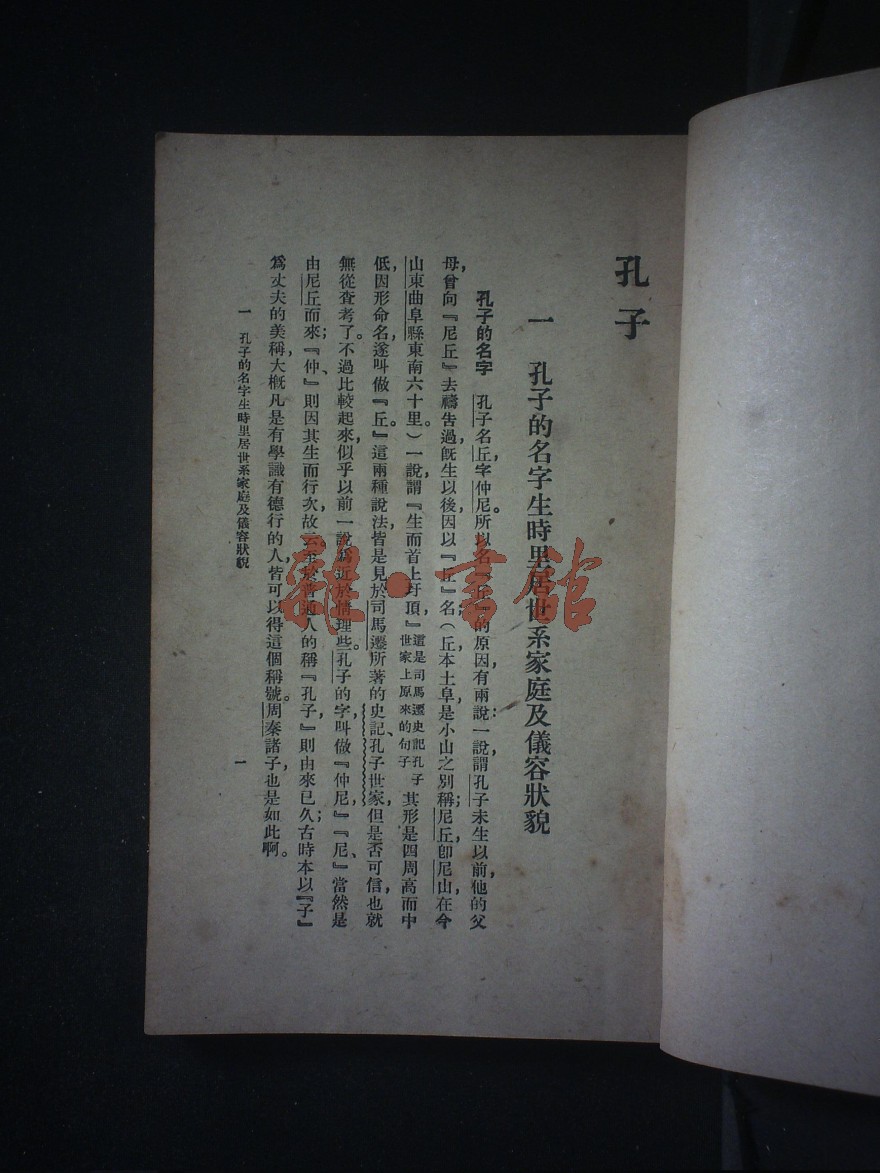 孔子
一 孔子的名字生時里居世系家庭及儀容狀貌
孔子的名字 孔子名丘，字仲尼。所以名『丘』的原因，有兩說：一說，謂孔子未生以前，他的父
母，曾向『尼丘』去禱告過，既生以後，因以『丘』名；（丘本土阜，是小山之別稱；尼丘，卽尼山，在今
山東曲阜縣東南六十里。）一說，謂『生而首上圩頂，』這是司馬遷史記孔子世家上原來的句子其形是四周高而中
低，因形命名，遂叫做『丘。』這兩種說法，皆是見於司馬遷所著的史記、孔子世家，但是否可信，也就
無從查考了。不過比較起來，似乎以前一說爲近於情理些。孔子的字，叫做『仲尼』，『尼、』當然是
由尼丘而來；『仲、』則因其生而行次，故云。至於普通人的稱『孔子，』則由來已久；古時本以『子』
爲丈夫的美稱，大槪凡是有學識有德行的人，皆可以得這個稱號。周秦諸子，也是如此啊。
一 孔子的名字生時里居世系家庭及儀容狀貌
一
雜·書館